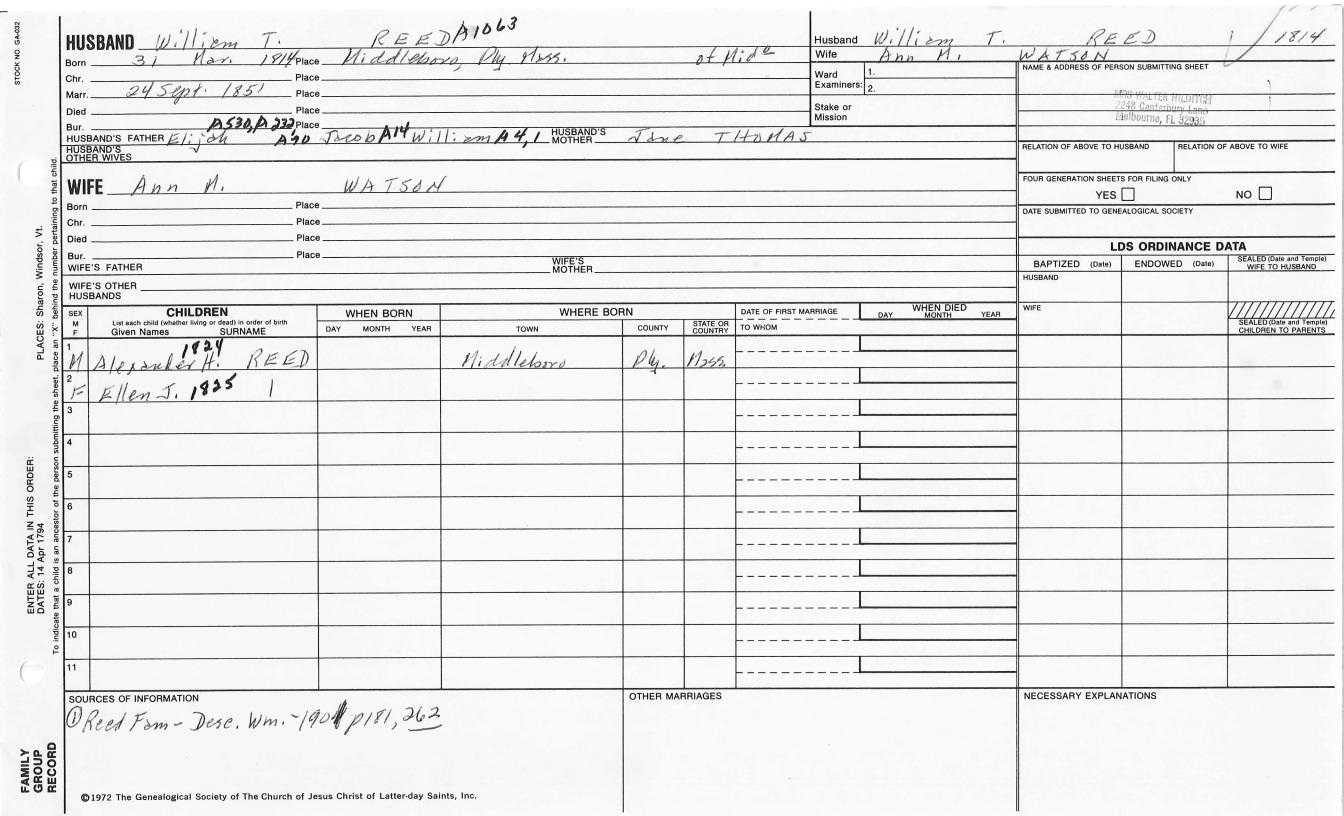 STOCK NO. GA-032
HUSBAND William T. REED A1063
Born 31 Mar. 1814 Place Middleboro, Ply Mass. of Mide
Chr. Place
Marr. 24 Sept. 1851 Place
Died Place
Bur. A530, A232 Place
HUSBAND'S FATHER Elijah A90 Jacob A14 William A4,1 HUSBAND'S MOTHER Jane THOMAS
HUSBAND'S OTHER WIVES
WIFE Ann M. WATSON
Born Place
Chr. Place
Died Place
Bur. Place
WIFE'S FATHER WIFE'S MOTHER
WIFE'S OTHER HUSBANDS
Husband William T. REED 1814
Wife Ann M. WATSON
Ward Examiners: 1.
2.
Stake or Mission
NAME & ADDRESS OF PERSON SUBMITTING SHEET
MRS WALTER HILDITCH
2248 Canterbury Lane
Melbourne, FL 32935
RELATION OF ABOVE TO HUSBAND RELATION OF ABOVE TO WIFE
FOUR GENERATION SHEETS FOR FILING ONLY
YES NO
DATE SUBMITTED TO GENEALOGICAL SOCIETY
LDS ORDINANCE DATA
BAPTIZED (Date) ENDOWED (Date) SEALED (Date and Temple) WIFE TO HUSBAND
HUSBAND
WIFE
SEALED (Date and Temple) CHILDREN TO PARENTS
SEX M F
CHILDREN
List each child (whether living or dead) in order of birth
Given Names SURNAME
WHEN BORN
DAY MONTH YEAR
WHERE BORN
TOWN COUNTY STATE OR COUNTRY
DATE OF FIRST MARRIAGE
TO WHOM
WHEN DIED
DAY MONTH YEAR
1
M Alexander H. 1824 REED Middleboro Ply. Mass.
2
F Ellen J. 1825
3
4
5
6
7
8
9
10
11
SOURCES OF INFORMATION
① Reed Fam - Desc. Wm. - 1901 p181, 262
OTHER MARRIAGES
NECESSARY EXPLANATIONS
©1972 The Genealogical Society of The Church of Jesus Christ of Latter-day Saints, Inc.
FAMILY GROUP RECORD
ENTER ALL DATA IN THIS ORDER:
DATES: 14 Apr 1794
PLACES: Sharon, Windsor, Vt.
To indicate that a child is an ancestor of the person submitting the sheet, place an "X" behind the number pertaining to that child.